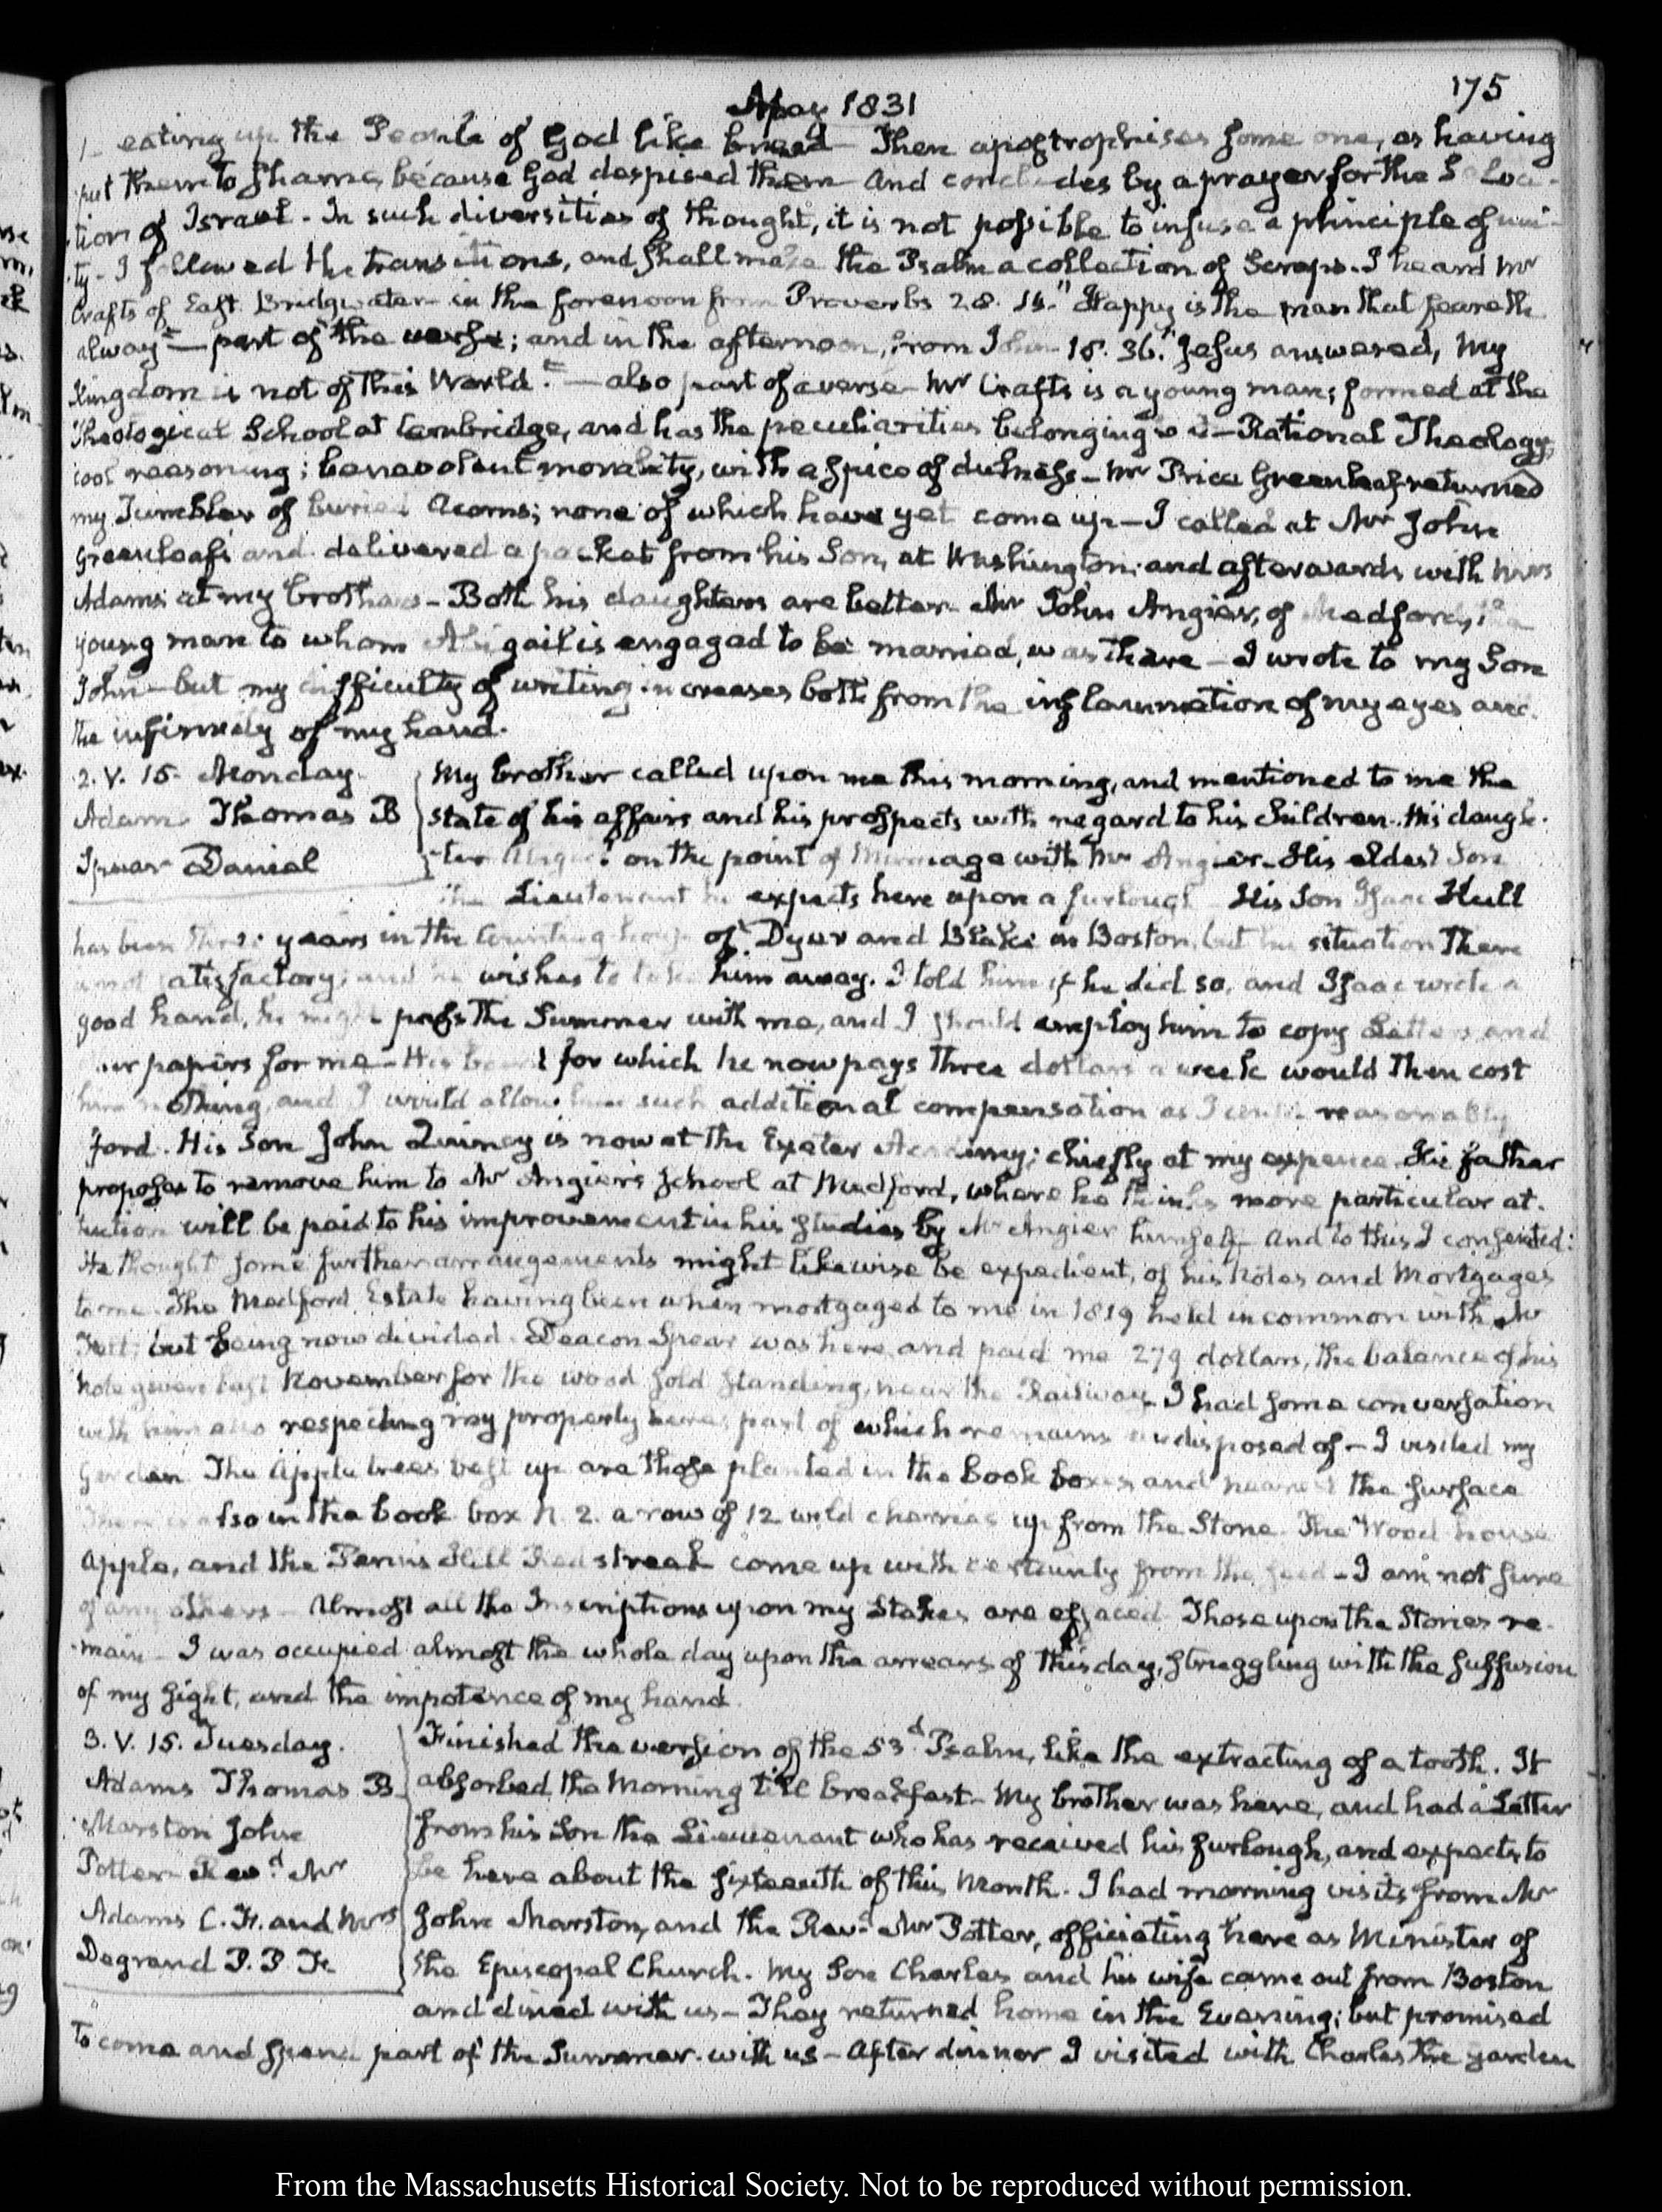 175
May 1831
1_ eating up the People of God like bread— Then apostrophises some one, as having
put them to shame, because God despised them— And concludes by a prayer for the Salva-
tion of Israel. In such diversities of thought, it is not possible to infuse a principle of uni-
ty. I followed the transitions, and shall make the Psalm a collection of Scraps. I heard Mr
Crafts of East Bridgwater in the forenoon from Proverbs 28. 14. "Happy is the man that feareth
alway"— part of the verse; and in the afternoon, from John 18. 36. "Jesus answered, My
Kingdom is not of this World."— also part of a verse— Mr Crafts is a young man; formed at the
Theological School at Cambridge, and has the peculiarities belonging to it— Rational Theology,
cool reasoning; benevolent morality, with a spice of dulness— Mr Price Greenleaf returned
my Tumbler of buried Acorns; none of which have yet come up— I called at Mr John
Greenleaf's and delivered a packet from his Son, at Washington; and afterwards with Mrs
Adams at my brother's— Both his daughters are better. Mr John Angier, of Medford, the
young man to whom Abigail is engaged to be married, was there— I wrote to my Son
John— but my difficulty of writing increases both from the inflammation of my eyes and
the infirmity of my hand.
2. V. 15. Monday.
Adams Thomas B
Spear Daniel
My brother called upon me this morning, and mentioned to me the
state of his affairs and his prospects with regard to his children. His daugh-
ter Abigail on the point of Marriage with Mr Angier— His eldest Son
the Lieutenant he expects here upon a furlough His Son Isaac Hull
has been three years in the Counting house of Dyer and Blake in Boston, but his situation there
is not satisfactory, and he wishes to take him away. I told him if he did so, and Isaac wrote a
good hand, he might pass the Summer with me, and I should employ him to copy Letters and
papers for me— His board for which he now pays three dollars a week would then cost
him nothing, and I would allow him such additional compensation as I could reasonably
ford. His Son John Quincy is now at the Exeter Academy; chiefly at my expence. His father
proposes to remove him to Mr Angier's School at Medford, where he thinks more particular at-
tention will be paid to his improvement in his studies by Mr Angier himself— And to this I consented:
He thought some further arrangements might likewise be expedient, of his Notes and Mortgages
to me. The Medford Estate having been when mortgaged to me in 1819 held in common with Mr
but being now divided. Deacon Spear was here, and paid me 279 dollars, the balance of his
Note given last November for the wood sold standing, near the Railway— I had some conversation
with him also respecting my property here, part of which remains undisposed of— I visited my
Garden The Apple trees best up are those planted in the book boxes and nearest the surface
There is also in the book box N. 2. a row of 12 wild cherries up from the Stone. The Wood house
Apple, and the Penns Hill Red streak come up with certainty from the seed— I am not sure
of any others— Almost all the Inscriptions upon my Stakes are effaced. Those upon the Stones re-
main— I was occupied almost the whole day upon the arrears of this day, struggling with the suffusion
of my sight, and the impotence of my hand.
3. V. 15. Tuesday.
Adams Thomas B.
Marston John
Potter Revd. Mr
Adams C. F. and Mrs
Degrand P. P. F.
Finished the version of the 53d. Psalm, like the extracting of a tooth. It
absorbed the Morning till breakfast— My brother was here, and had a Letter
from his Son the Lieutenant who has received his furlough, and expects to
be here about the sixteenth of this Month. I had morning visits from Mr
John Marston, and the Revd. Mr Potter, officiating here as Minister of
the Episcopal Church. My Son Charles and his wife came out from Boston
and dined with us— They returned home in the Evening; but promised
to come and spend part of the Summer with us— After dinner I visited with Charles the garden
From the Massachusetts Historical Society. Not to be reproduced without permission.